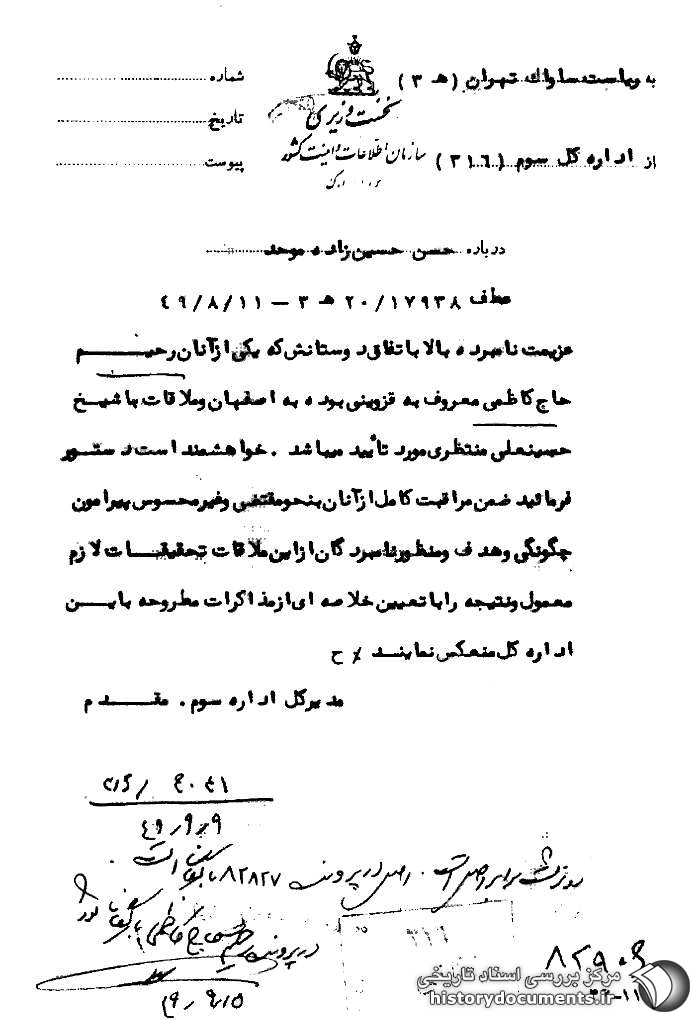 به ریاست ساواک تهران (هـ ۳)
شماره
نخست وزیری
تاریخ
از اداره کل سوم (۳۱٦)
سازمان اطلاعات و امنیت کشور
پیوست
درباره حسن حسین زاده موحد
عطف ۲۰/۱۷۹۳۸ هـ ۳ – ٤۹/۸/۱۱
عزیمت نامبرده بالا باتفاق دوستانش که یکی از آنان رحیم
حاج کاظمی معروف به قزوینی بوده به اصفهان و ملاقات با شیخ
حسینعلی منتظری مورد تأیید میباشد . خواهشمند است دستور
فرمائید ضمن مراقبت کامل از آنان بنحو مقتضی و غیر محسوس پیرامون
چگونگی و هدف و منظور نامبردگان از این ملاقات تحقیقات لازم
معمول و نتیجه را با تعیین خلاصه ای از مذاکرات مطروحه باین
اداره کل منعکس نمایند ح
مدیر کل اداره سوم . مقدم
٤۹/۹/۹
رونوشت برابر اصل است . اصل در پرونده ۸۲۸۲۷ بایگانی است .
در پرونده رحیم حاج کاظمی بایگانی شود
۳۱٦
مرکز بررسی اسناد تاریخی
historydocuments.ir